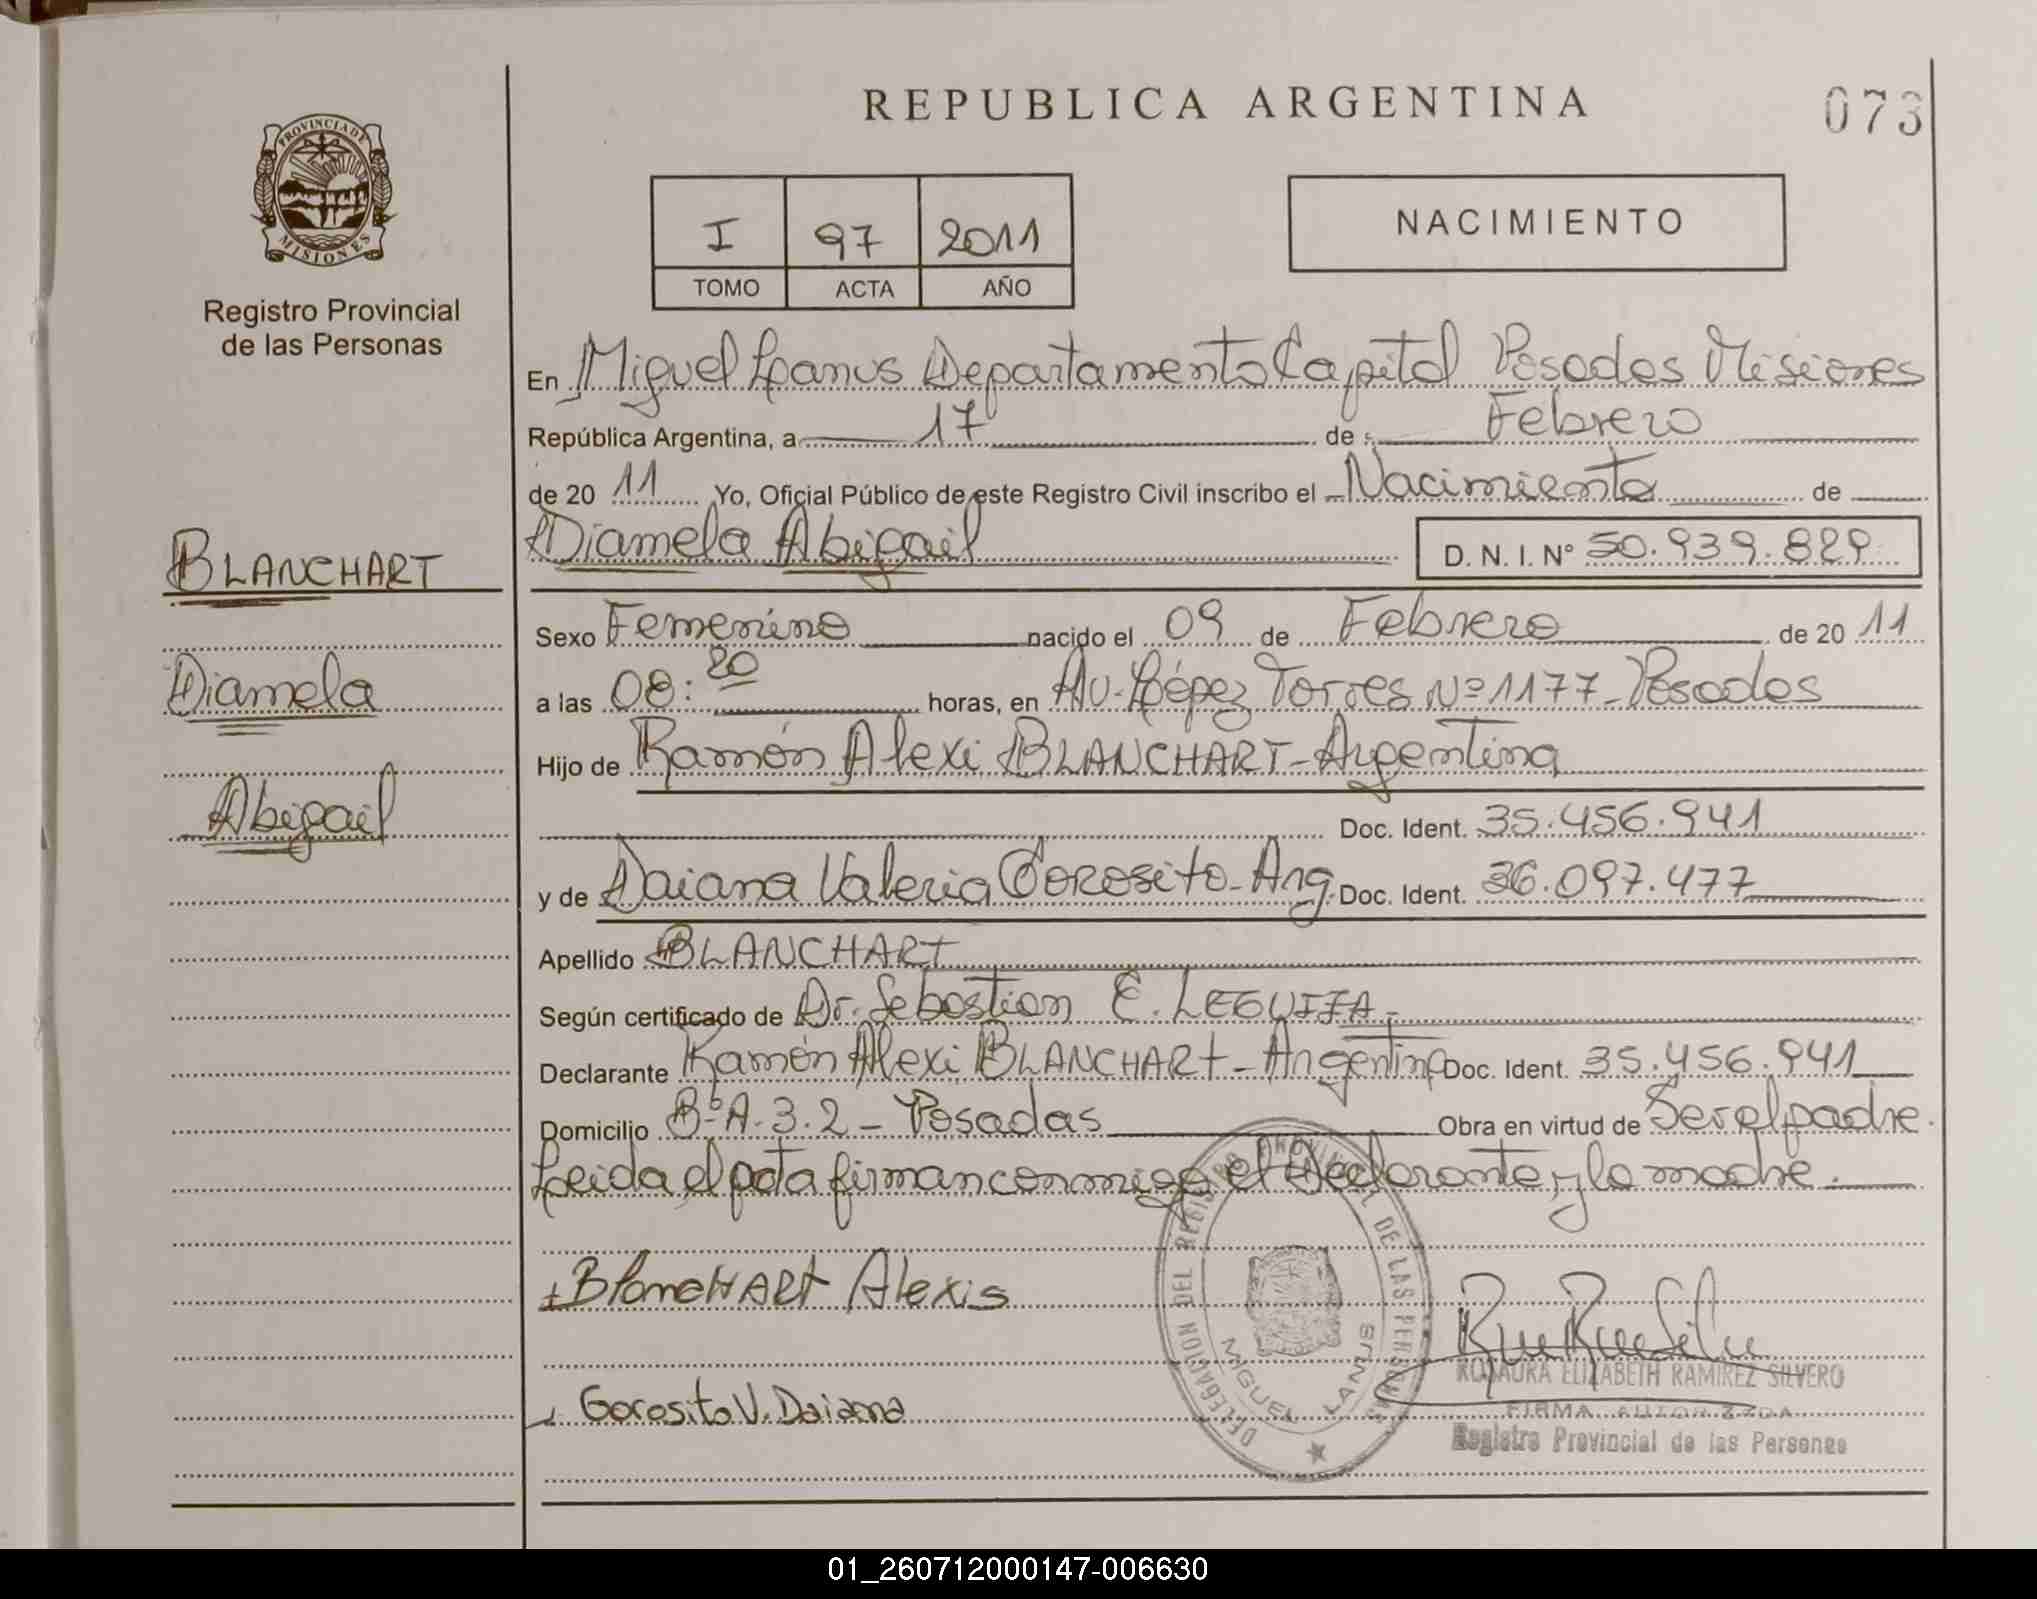 REPUBLICA ARGENTINA
073
PROVINCIA DE
MISIONES
Registro Provincial
de las Personas
I 97 2011
TOMO ACTA AÑO
NACIMIENTO
En Miguel Lanus Departamento Capital Posadas Misiones
República Argentina, a 17 de Febrero
de 20 11 Yo, Oficial Público de este Registro Civil inscribo el Nacimiento de
Diamela Abigail D. N. I. N° 50.939.829
BLANCHART
Diamela
Abigail
Sexo Femenino nacido el 09 de Febrero de 20 11
a las 08:20 horas, en Av. López Torres Nº 1177 - Posadas
Hijo de Ramón Alexi BLANCHART - Argentina
Doc. Ident. 35.456.941
y de Daiana Valeria Gorosito - Arg. Doc. Ident. 36.097.477
Apellido BLANCHART
Según certificado de Dr. Sebastian E. LEGUIZA -
Declarante Ramón Alexi BLANCHART - Argentina Doc. Ident. 35.456.941
Domicilio Bº A. 3.2 - Posadas Obra en virtud de Ser el padre.
Leida el acta firman conmigo el Declarante y la madre.
BlancHART Alexis
Gorosito V. Daiana
DELEGACION DEL REGISTRO PROVINCIAL DE LAS PERSONAS
MIGUEL LANUS
ROSAURA ELIZABETH RAMIREZ SILVERO
FIRMA AUTORIZADA
Registro Provincial de las Personas
01_260712000147-006630